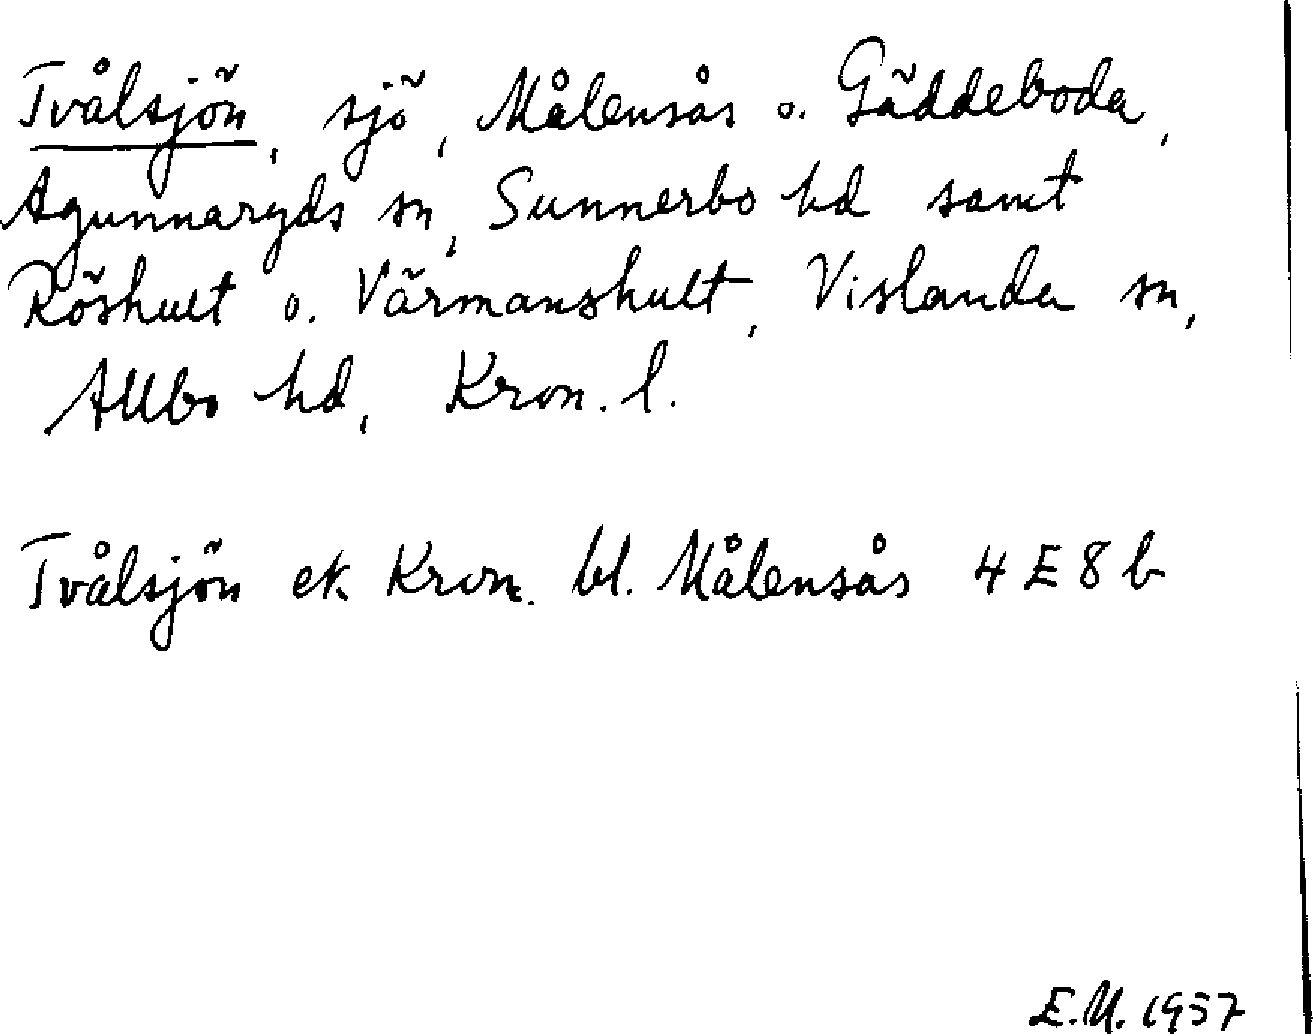 Tvålsjön, sjö, Målensås o. Gäddeboda,
Agunnaryds sn, Sunnerbo hd samt
Röshult o. Värmanshult, Vislanda sn,
Allbo hd, Kron. l.
Tvålsjön ek. Kron. bl. Målensås 4 E 8 b
E.M. 1957